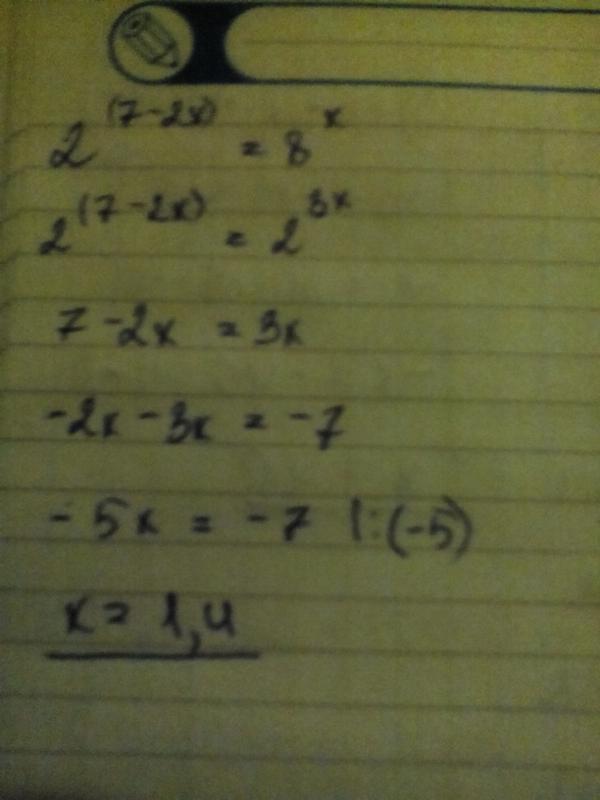 2^(7-2x) = 8^x
2^(7-2x) = 2^3x
7-2x = 3x
-2x-3x = -7
-5x = -7 |:(-5)
x = 1,4